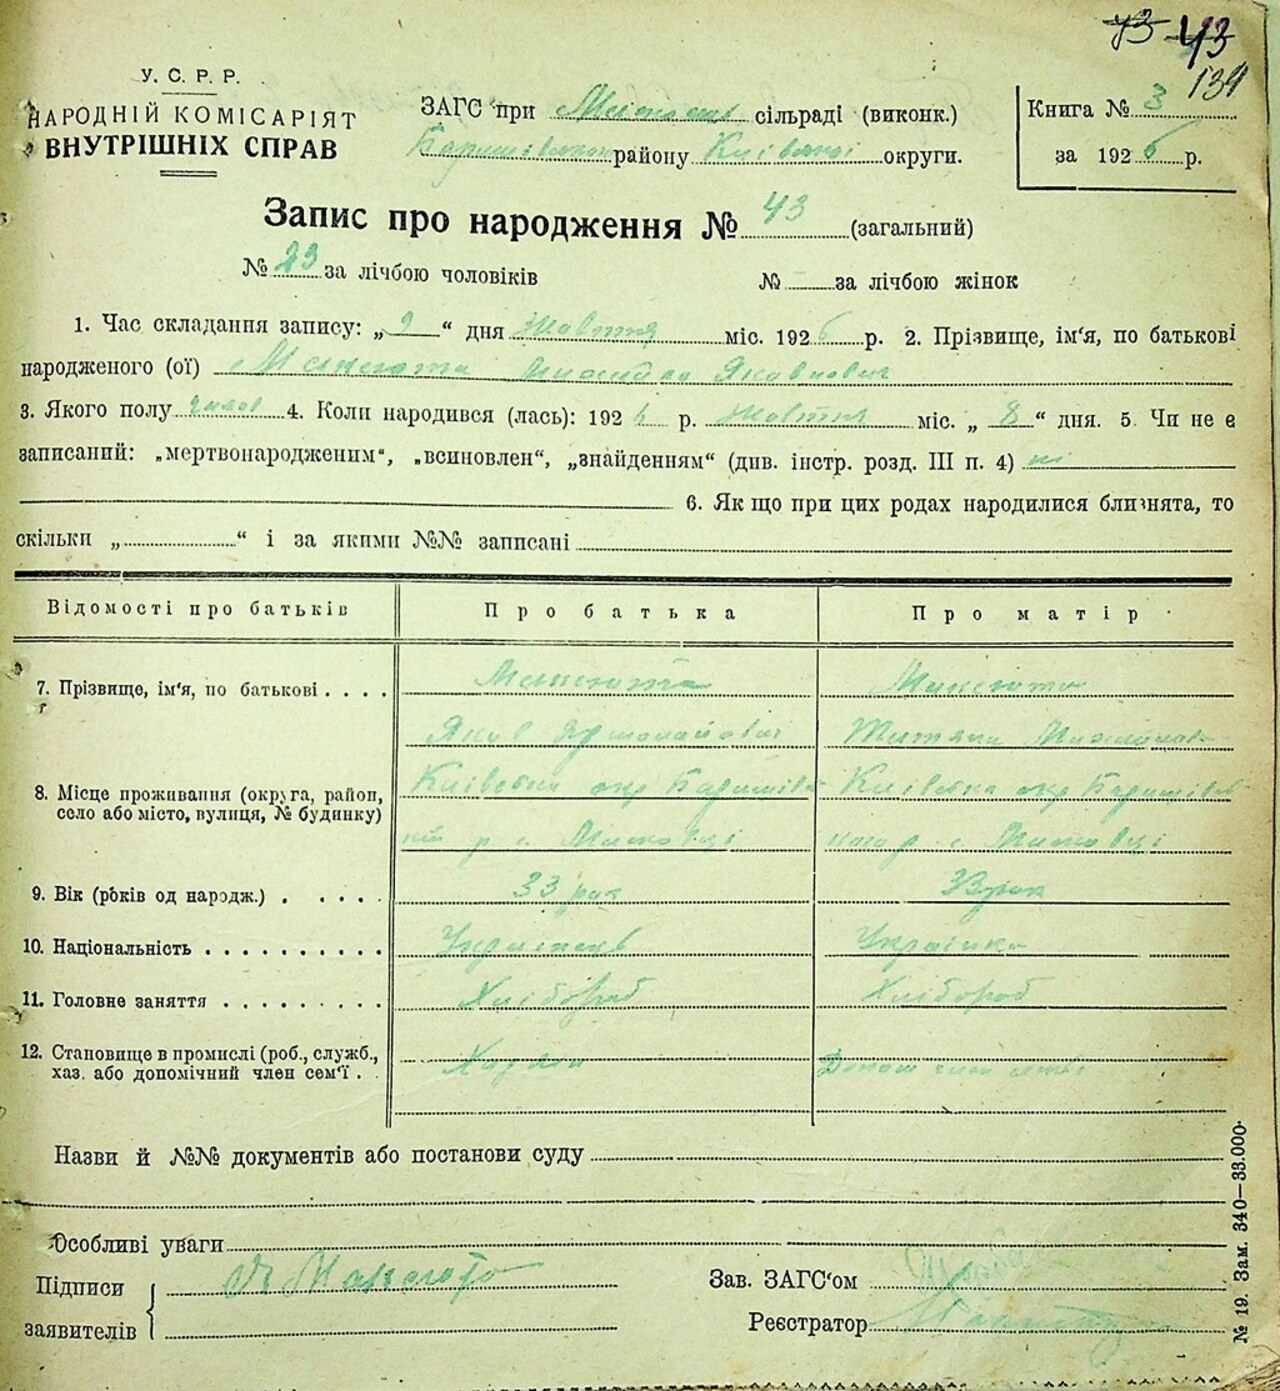 43 43
134
У. С. Р. Р.
НАРОДНІЙ КОМІСАРІЯТ
ВНУТРІШНІХ СПРАВ
ЗАГС при сільраді (виконк.)
району Київської округи.
Книга № 3
за 1926 р.
Запис про народження № 43 (загальний)
№ 23 за лічбою чоловіків № за лічбою жінок
1. Час складання запису: „ 9 “ дня Жовтня міс. 1926 р. 2. Прізвище, ім'я, по батькові
народженого (ої) Максюта Михайло Якович
3. Якого полу чолов 4. Коли народився (лась): 1926 р. Жовтня міс. „ 8 “ дня. 5. Чи не є
записаний: „мертвонародженим“, „всиновлен“, „знайденням“ (див. інстр. розд. III п. 4) ні
6. Як що при цих родах народилися близнята, то
скільки „ “ і за якими №№ записані
Відомості про батьків Про батька Про матір
7. Прізвище, ім‘я, по батькові . . . . Максюта Максюта
Яков
8. Місце проживання (округа, район, Київська окр Київська окр
село або місто, вулиця, № будинку) р с. р. с.
9. Вік (років од народж.) . . . . . 33 рок 33 рок
10. Національність . . . . . . . . . . Українець Українка
11. Головне заняття . . . . . . . . . Хлібороб Хлібороб
12. Становище в промислі (роб., служб.,
хаз. або допомічний член сем‘ї . .
Назви й №№ документів або постанови суду
Особливі уваги
Підписи Максюта Зав. ЗАГС‘ом
заявителів Реєстратор
№ 19. Зам. 340—33.000.